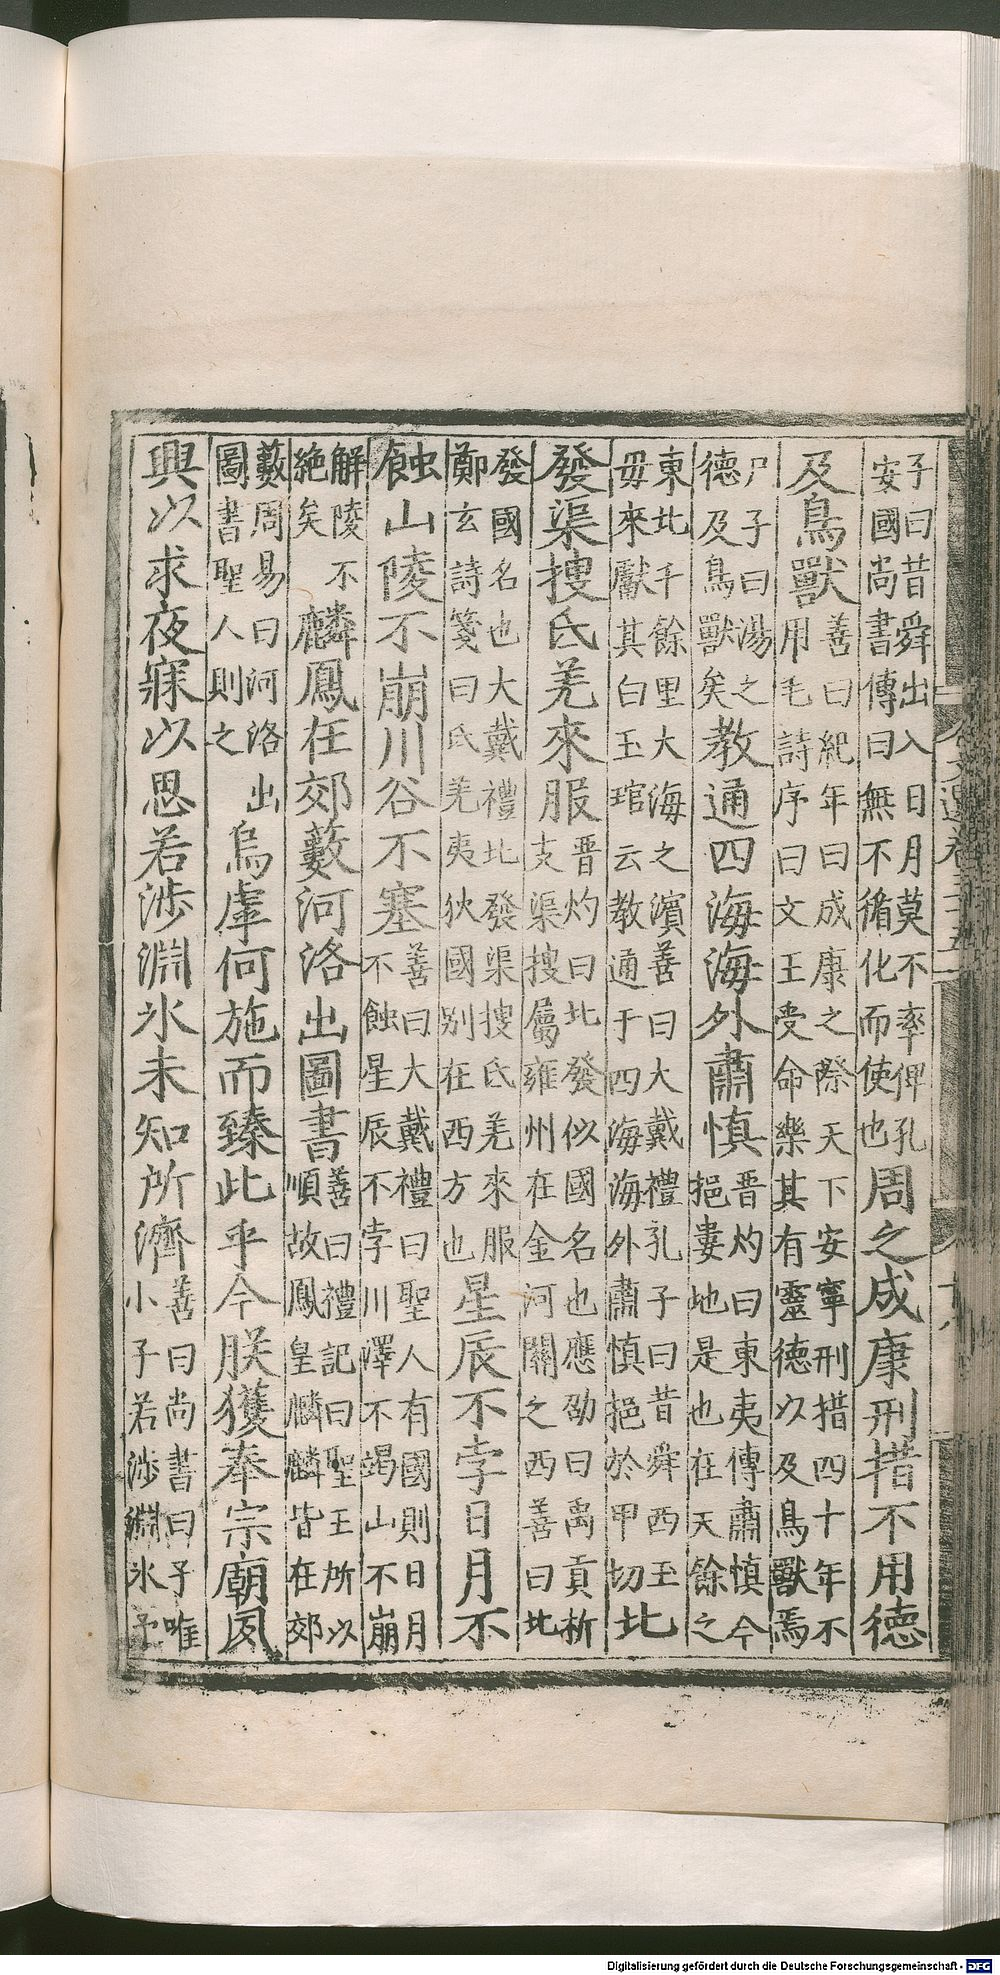 子曰昔舜出入日月莫不率俾孔安國尚書傳曰無不循化而使也周之成康刑措不用德
及鳥獸善曰紀年曰成康之際天下安寧刑措四十年不用毛詩序曰文王受命樂其有靈德以及鳥獸焉
尸子曰湯之德及鳥獸矣教通四海海外肅慎晉灼曰東夷傳肅慎今挹婁地是也在天餘之
東北千餘里大海之濱善曰大戴禮孔子曰昔舜西至毋來獻其白玉琯云教通于四海海外肅慎挹於甲切北
發渠搜氐羌來服晉灼曰北發似國名也應劭曰禹貢析支渠搜屬雍州在金河關之西善曰北
發國名也大戴禮北發渠搜氐羌來服鄭玄詩箋曰氐羌夷狄國別在西方也星辰不孛日月不
蝕山陵不崩川谷不塞善曰大戴禮曰聖人有國則日月不蝕星辰不孛川澤不竭山不崩
解陵不絶矣麟鳳在郊藪河洛出圖書善曰禮記曰聖王所以順故鳳皇麟麟皆在郊
藪周易曰河洛出圖書聖人則之烏虖何施而臻此乎今朕獲奉宗廟夙
興以求夜寐以思若涉淵氷未知所濟善曰尚書曰予唯小子若涉淵氷予
Digitalisierung gefördert durch die Deutsche Forschungsgemeinschaft - DFG